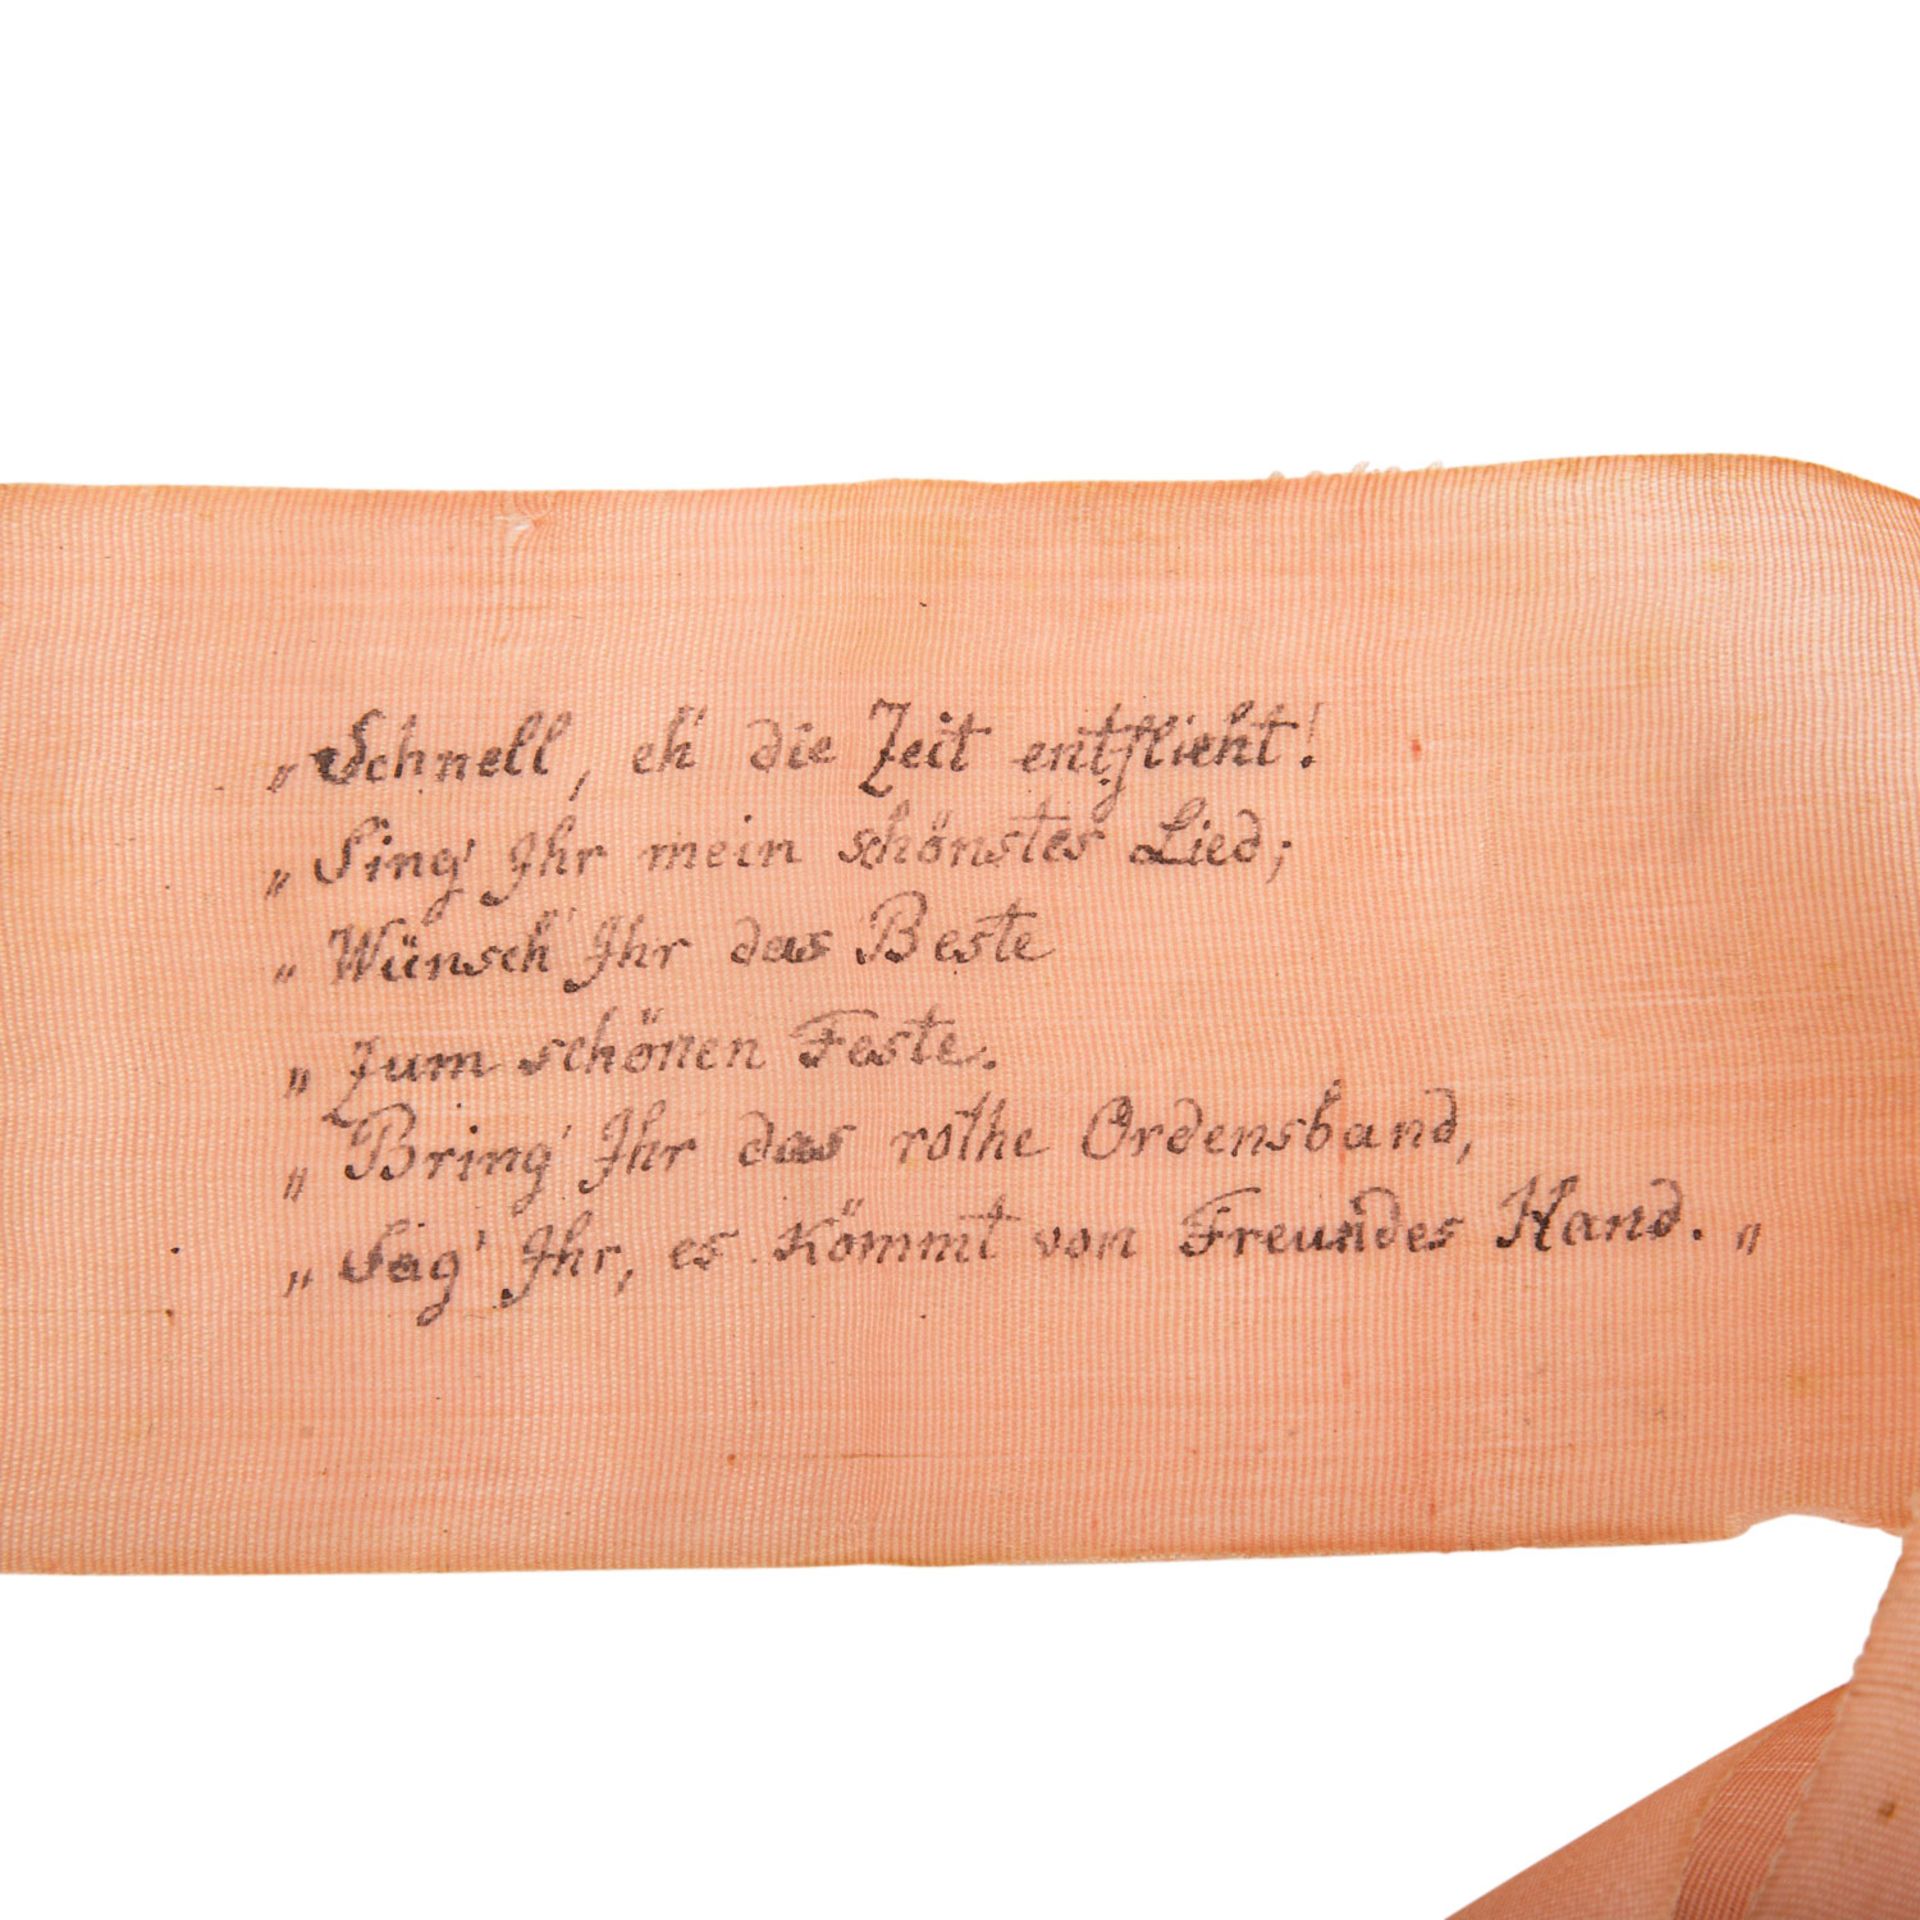 „Schnell, eh' die Zeit entflieht!
„Sing' Ihr mein schönstes Lied;
„Wünsch' Ihr das Beste
„Zum schönen Feste.
„Bring' Ihr das rothe Ordensband,
„Sag' Ihr, es kömmt von Freundes Hand.„